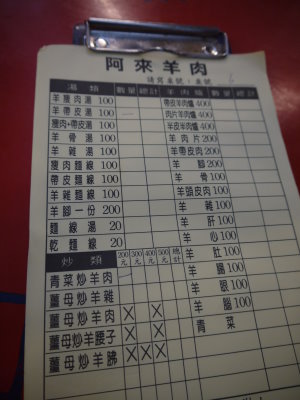 阿來羊肉
請寫桌號：桌號 6
湯類 數量 總計 羊肉爐 數量 總計
羊瘦肉湯 100 帶皮羊肉爐 400
羊帶皮湯 200 肉片羊肉爐 400
瘦肉+帶皮湯 100 半皮半肉爐 400
羊骨湯 100 羊肉片 200
羊雜湯 100 羊帶皮肉 200
瘦肉麵線 100 羊腳 200
帶皮麵線 100 羊骨 100
羊雜麵線 100 羊頭皮肉 100
羊腳一份 200 羊雜 100
麵線湯 20 羊肝 100
乾麵線 20 羊心 100
炒類 200元 300元 400元 500元 總計 羊肚 100
青菜炒羊肉 羊腸 100
薑母炒羊雜 羊眼 100
薑母炒羊肉 X X 羊腦 100
薑母炒羊腰子 X X 青菜
薑母炒羊胇 X X X